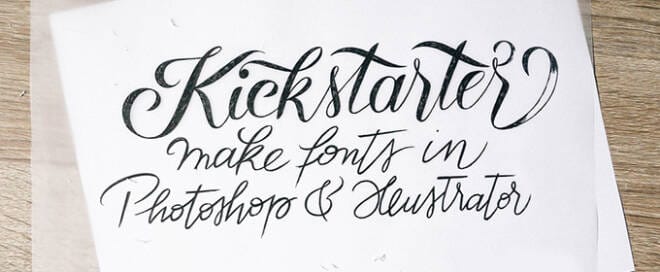 Kickstarter
make fonts in
Photoshop & Illustrator